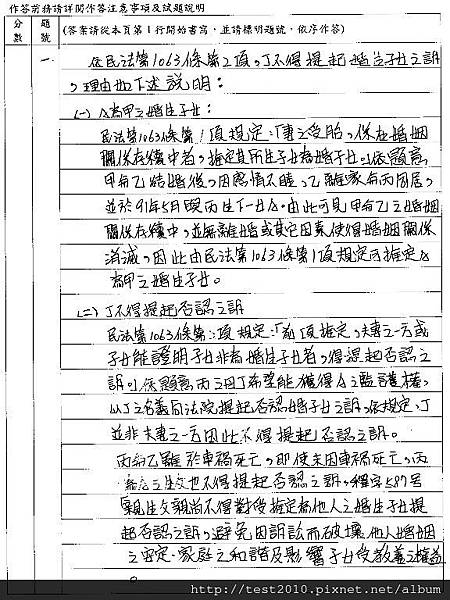 作答前務請詳閱作答注意事項及試題說明
分數
題號
(答案請從本頁第1行開始書寫,並請標明題號,依序作答)
一、
依民法第1063條第2項,丁不得提起婚生子女之訴
,理由如下述說明:
(一) A為甲之婚生子女:
民法第1063條第1項規定:「妻之受胎,係在婚姻
關係存續中者,推定其所生子女為婚生子女。」依題意,
甲和乙結婚後,因感情不睦,乙離家和丙同居,
並於91年5月間丙生下一女A。由此可見甲和乙之婚姻
關係存續中,並無離婚或其它因素使得婚姻關係
消滅,因此由民法第1063條第1項規定可推定A
為甲之婚生子女。
(二) 丁不得提起否認之訴
民法第1063條第二項規定:「前項推定,夫妻之一方或
子女能證明子女非為婚生子女者,得提起否認之
訴。」依題意,丙之母丁希望能獲得A之監護權,
以丁之名義向法院提起否認婚生子女之訴,依規定,丁
並非夫妻之一方因此不得提起否認之訴。
丙和乙雖於車禍死亡,即使未因車禍死亡,丙
之生父也不得提起否認之訴。釋字587號
親生父親尚不得對受推定為他人之婚生子女提
起否認之訴,避免因訴訟而破壞他人婚姻
之安定、家庭之和諧及影響子女受教養之權益
。
http://test2010.pixnet.net/album